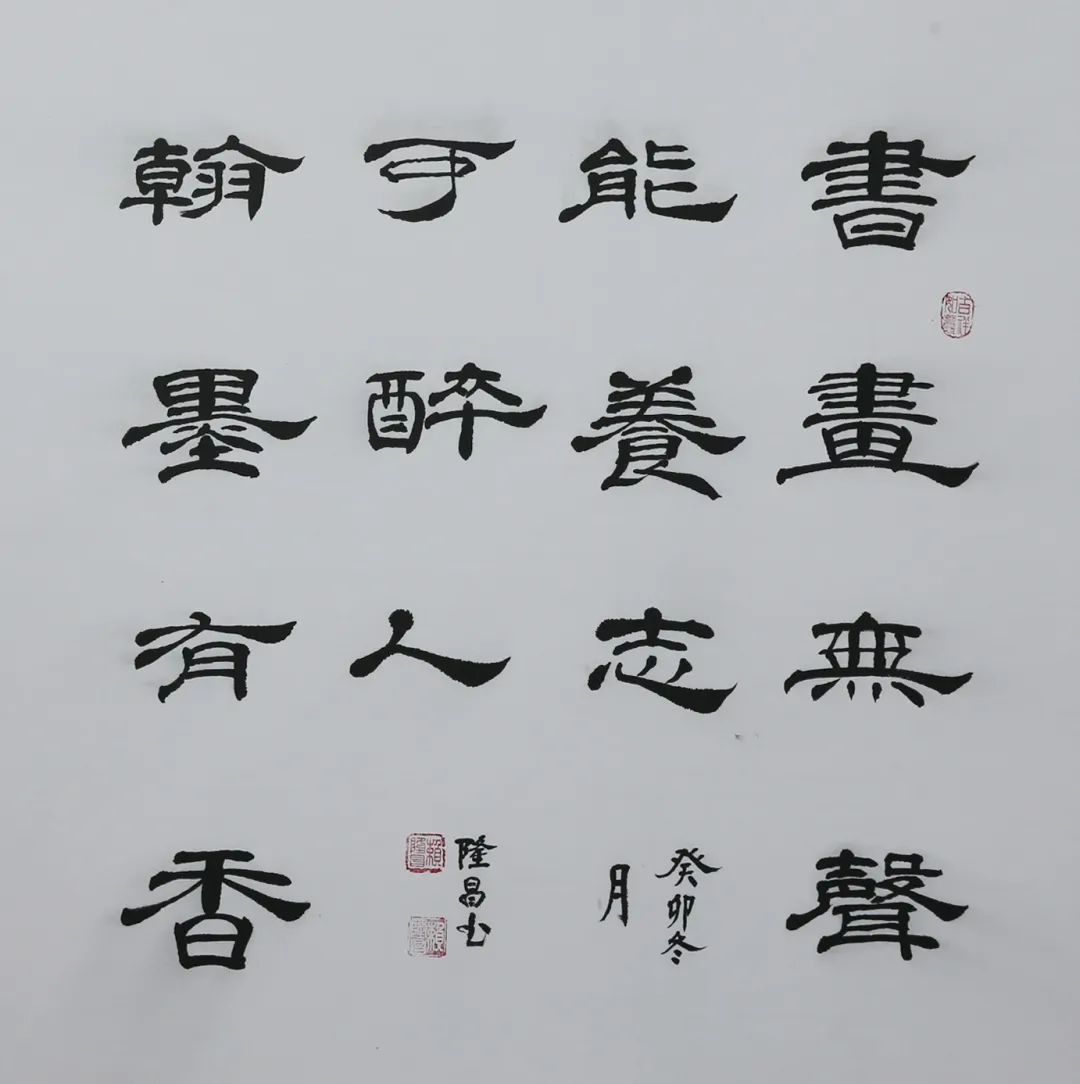 書畫無聲
能養志
翰墨有香
可醉人
癸卯冬
月
隆昌书
吉祥如意